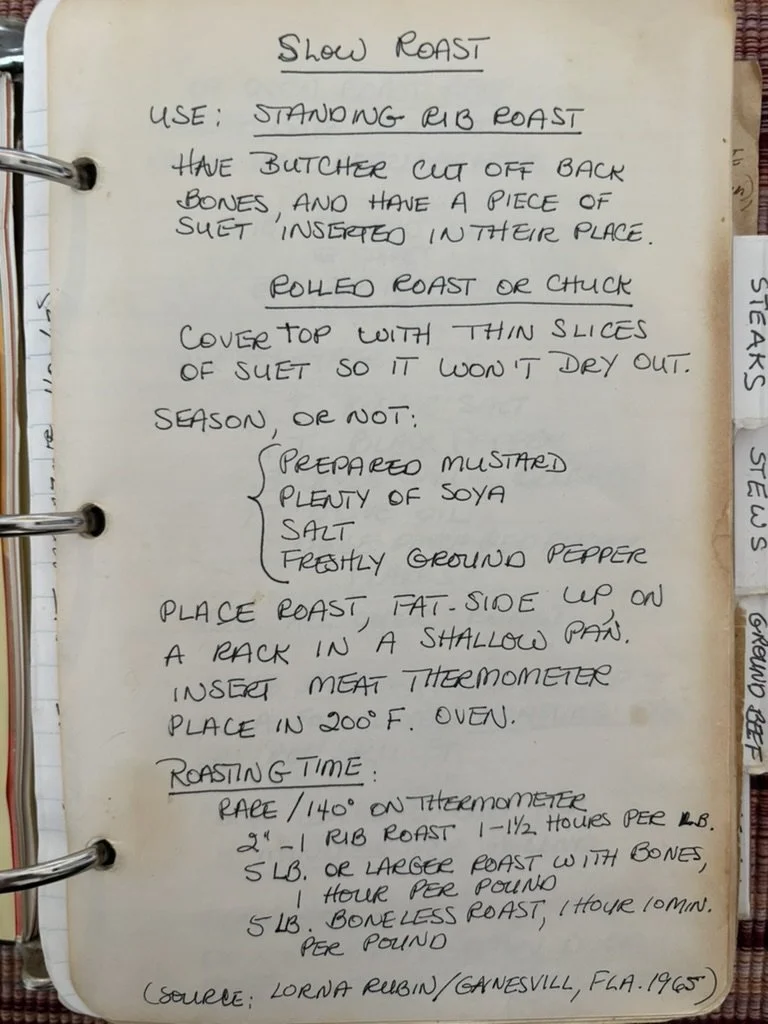 SLOW ROAST
USE: STANDING RIB ROAST
HAVE BUTCHER CUT OFF BACK
BONES, AND HAVE A PIECE OF
SUET INSERTED IN THEIR PLACE.
ROLLED ROAST OR CHUCK
COVER TOP WITH THIN SLICES
OF SUET SO IT WON'T DRY OUT.
SEASON, OR NOT:
PREPARED MUSTARD
PLENTY OF SOYA
SALT
FRESHLY GROUND PEPPER
PLACE ROAST, FAT-SIDE UP, ON
A RACK IN A SHALLOW PAN.
INSERT MEAT THERMOMETER
PLACE IN 200° F. OVEN.
ROASTING TIME:
RARE / 140° ON THERMOMETER
2" - 1 RIB ROAST 1-1½ HOURS PER LB.
5 LB. OR LARGER ROAST WITH BONES,
1 HOUR PER POUND
5 LB. BONELESS ROAST, 1 HOUR 10 MIN.
PER POUND
(SOURCE: LORNA RUBIN/GAINESVILL, FLA. 1965)
STEAKS
STEWS
GROUND BEEF